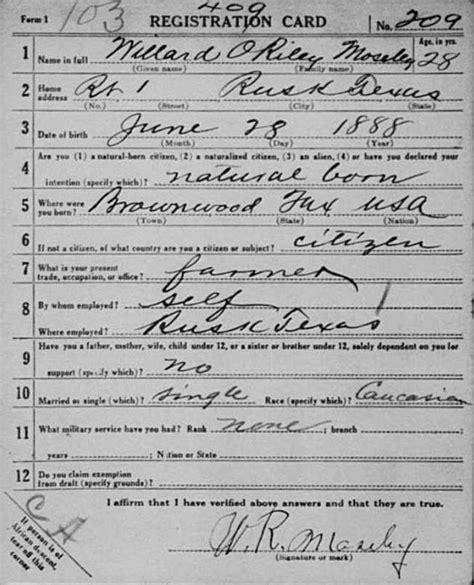 103 409
Form 1 REGISTRATION CARD No. 209
1 Name in full Willard O Riley Moseley Age, in yrs. 28
(Given name) (Family name)
2 Home address Rt 1 Rusk Texas
(No.) (Street) (City) (State)
3 Date of birth June 28 1888
(Month) (Day) (Year)
4 Are you (1) a natural-born citizen, (2) a naturalized citizen, (3) an alien, (4) or have you declared your
intention (specify which)? natural born
5 Where were you born? Brownwood Tax USA
(Town) (State) (Nation)
6 If not a citizen, of what country are you a citizen or subject? citizen
7 What is your present trade, occupation, or office? farmer
8 By whom employed? self
Where employed? Rusk Texas
9 Have you a father, mother, wife, child under 12, or a sister or brother under 12, solely dependent on you for
support (specify which)? no
10 Married or single (which)? single Race (specify which)? Caucasian
11 What military service have you had? Rank none ; branch
years ; Nation or State
12 Do you claim exemption from draft (specify grounds)?
I affirm that I have verified above answers and that they are true.
W. R. Moseley
(Signature or mark)
If person is of
African descent,
tear off this
corner.